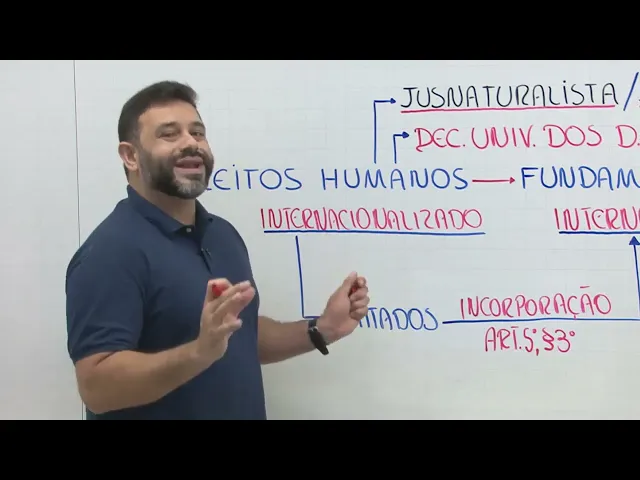 JUSNATURALISTA /
DEC. UNIV. DOS D.
EITOS HUMANOS → FUNDAM
INTERNACIONALIZADO INTERN
TADOS INCORPORAÇÃO
ART. 5°, §3°